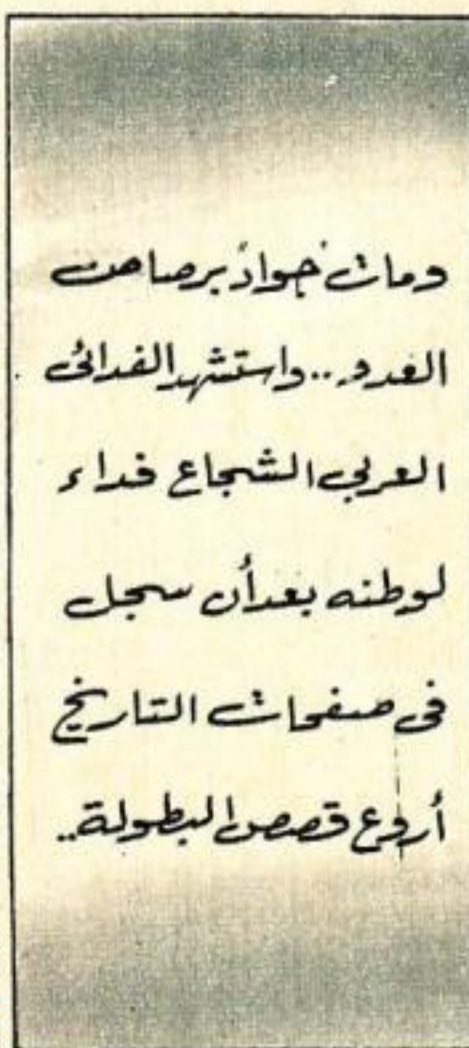 ومات جواد برصاص
الغدر .. واستشهد الفدائى
العربي الشجاع فداء
لوطنه بعد أن سجل
فى صفحات التاريخ
أروع قصص البطولة ..